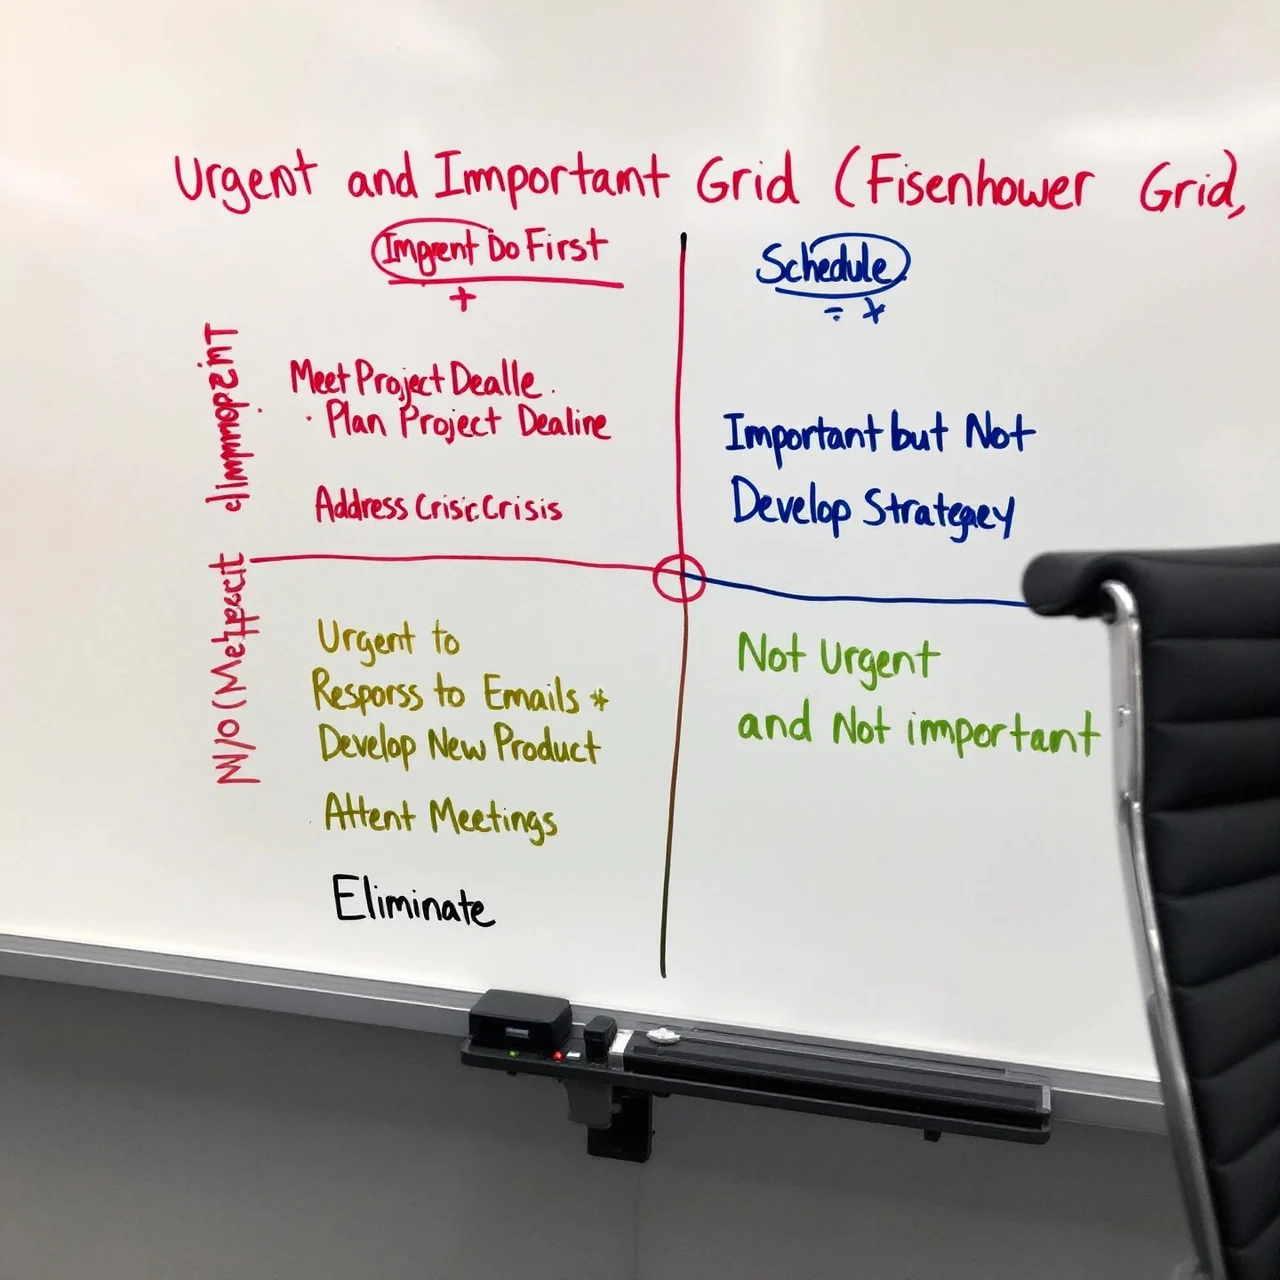 Urgent and Immportant Grid (Fisenhower Grid,
Do First
+
Schedule
Meet Project Dealle.
· Plan Project Dealine
Address Crisic Crisis
Important but Not
Develop Strategey
Urgent to
Resporss to Emails *
Develop New Product
Attent Meetings
Eliminate
Not Urgent
and Not important